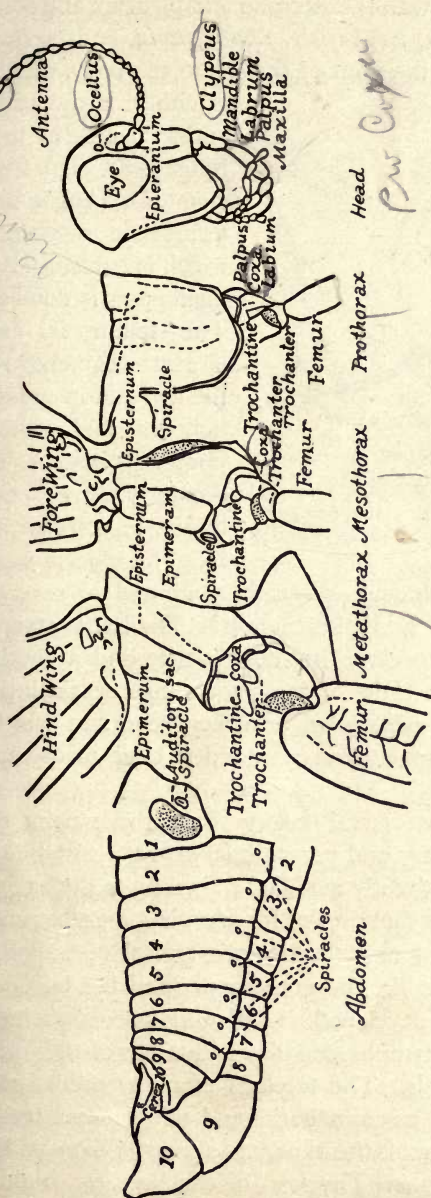 Antenna
Ocellus
Eye
Epieranium
Clypeus
Mandible
Labrum
Palpus
Maxilla
Palpus
Coxa
Labium
Head
Episternum
Spiracle
Trochantine
Trochanter
Femur
Prothorax
Fore Wing
Episternum
Epimeram
Spiracle
Trochantine
Coxa
Trochanter
Femur
Mesothorax
Hind Wing
Epimerum
Auditory sac
Spiracle
Trochantine
Coxa
Trochanter
Femur
Metathorax
1
2
3
4
5
6
7
8
9
10
Cercus
10
9
8
7
6
5
4
3
2
Spiracles
Abdomen